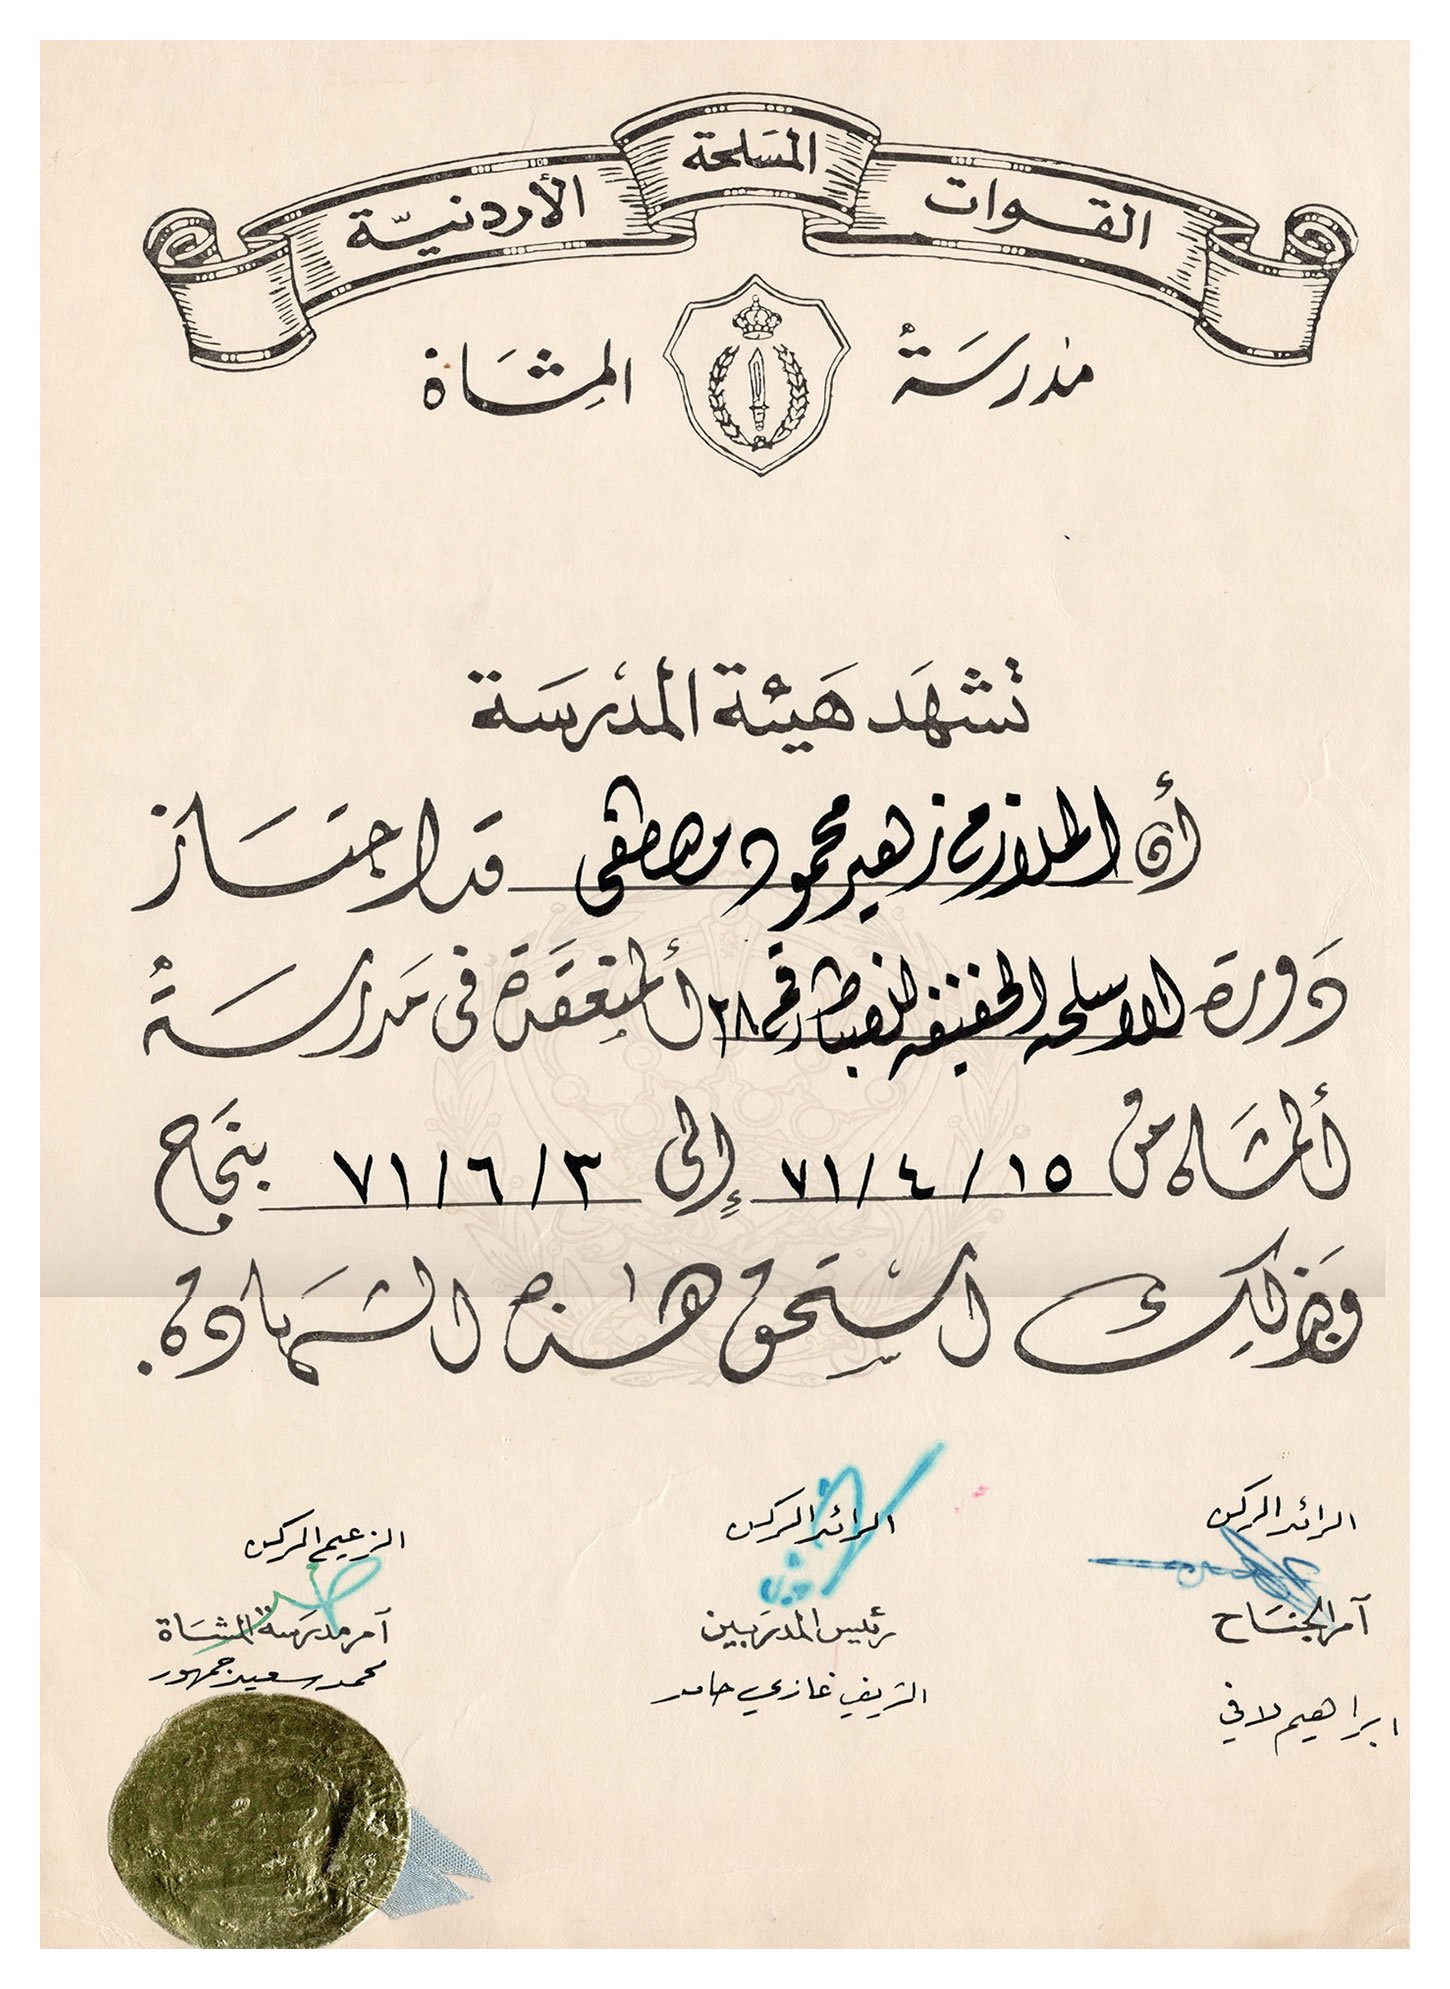 القوات المسلحة الأردنيّة
مدرسَةُ المِشَاة
تشهَد هَيئة المدْرسَة
أن الملازم زهير محمود مصطفى قد اجتَاز
دَورة الاسلحه الخفيفه للضباط رقم ٢٨ ألمنِعَقَدة في مَدرسَةُ
ألمشَاه من ٧١/٤/١٥ إلى ٧١/٦/٣ بنجَاح
وَبذلِك استَحق هٰذه الشهَادة.
الرائد الركن
آمر الجنَاح
ابراهيم لافي
الرائد الركن
رئيس المدَربين
الشريف غازي حامد
الزعيم الركن
آمر مدرَسة المشَاة
محمد سعيد جمهور